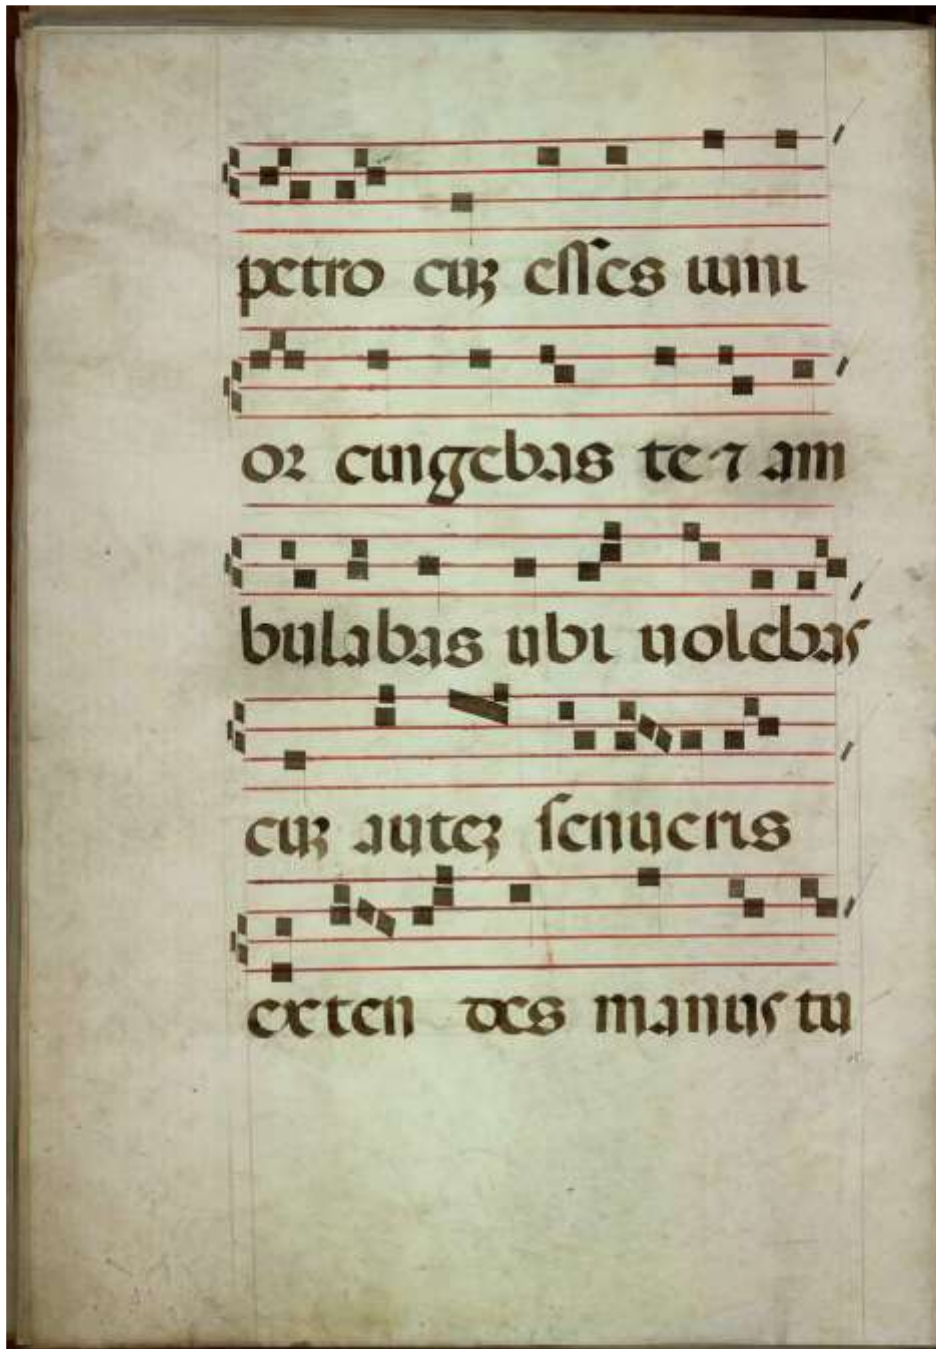 petro cuꝫ esses iuni
or cingebas te ⁊ am
bulabas ubi uolebas
cuꝫ auteꝫ senueris
exten des manus tu